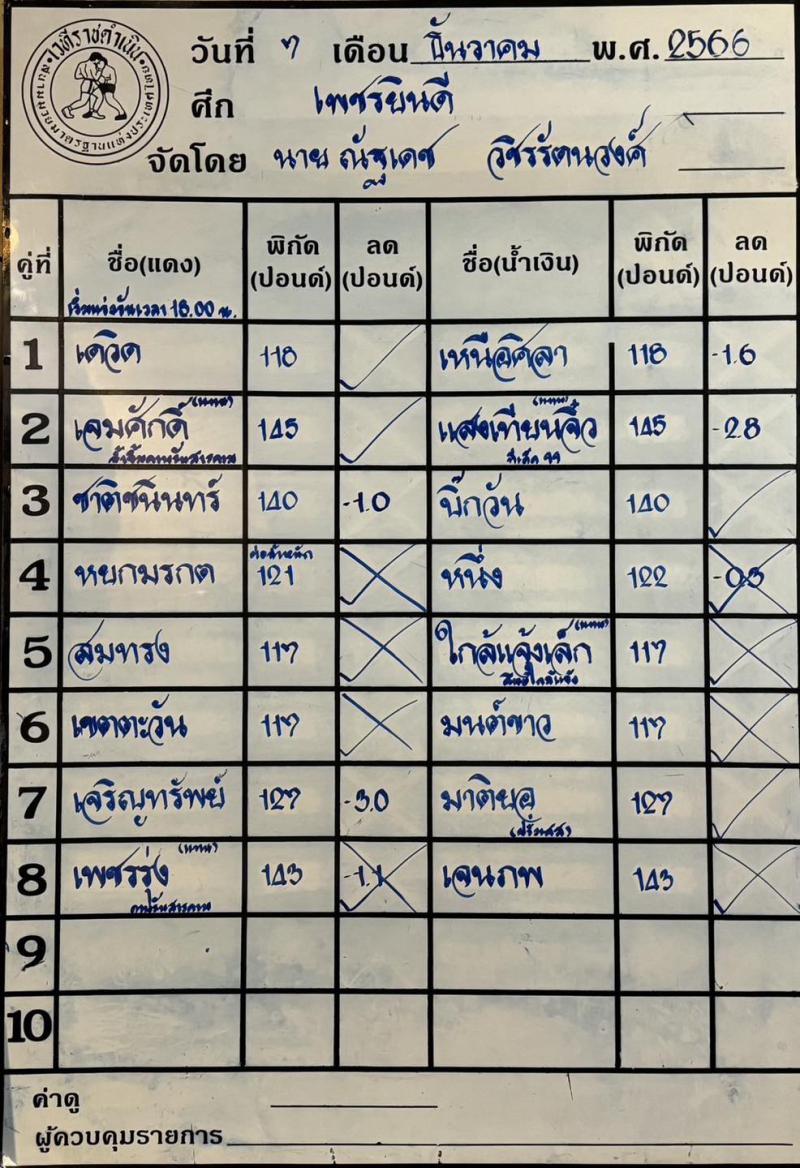 เวทีราชดำเนิน
สนามมวยมาตรฐานแห่งประเทศไทย
วันที่ 7 เดือน ธันวาคม พ.ศ. 2566
ศึก เพชรยินดี
จัดโดย นาย ณัฐเดช วชิรรัตนวงศ์
คู่ที่ ชื่อ(แดง) พิกัด (ปอนด์) ลด (ปอนด์) ชื่อ(น้ำเงิน) พิกัด (ปอนด์) ลด (ปอนด์)
เริ่มแข่งขันเวลา 18.00 น.
1 เดวิด 118 เหนือศิลา 118 -1.6
2 เจมศักดิ์ (แทน) 145 แสงเทียนจิ๋ว (แทน) 145 -2.8
3 ชาติชนินทร์ 140 -1.0 บิ๊กวัน 140
4 หยกมรกต ต่อน้ำหนัก 121 หนึ่ง 122 -0.3
5 สมทรง 117 ใกล้แจ้งเล็ก (แทน) 117
6 เขตตะวัน 117 มนต์ขาว 117
7 เจริญทรัพย์ 127 -3.0 มาติยอ 127
(ฝรั่งเศส)
8 เพชรรุ่ง (แทน) 143 -1.1 เจนภพ 143
9
10
ค่าดู
ผู้ควบคุมรายการ